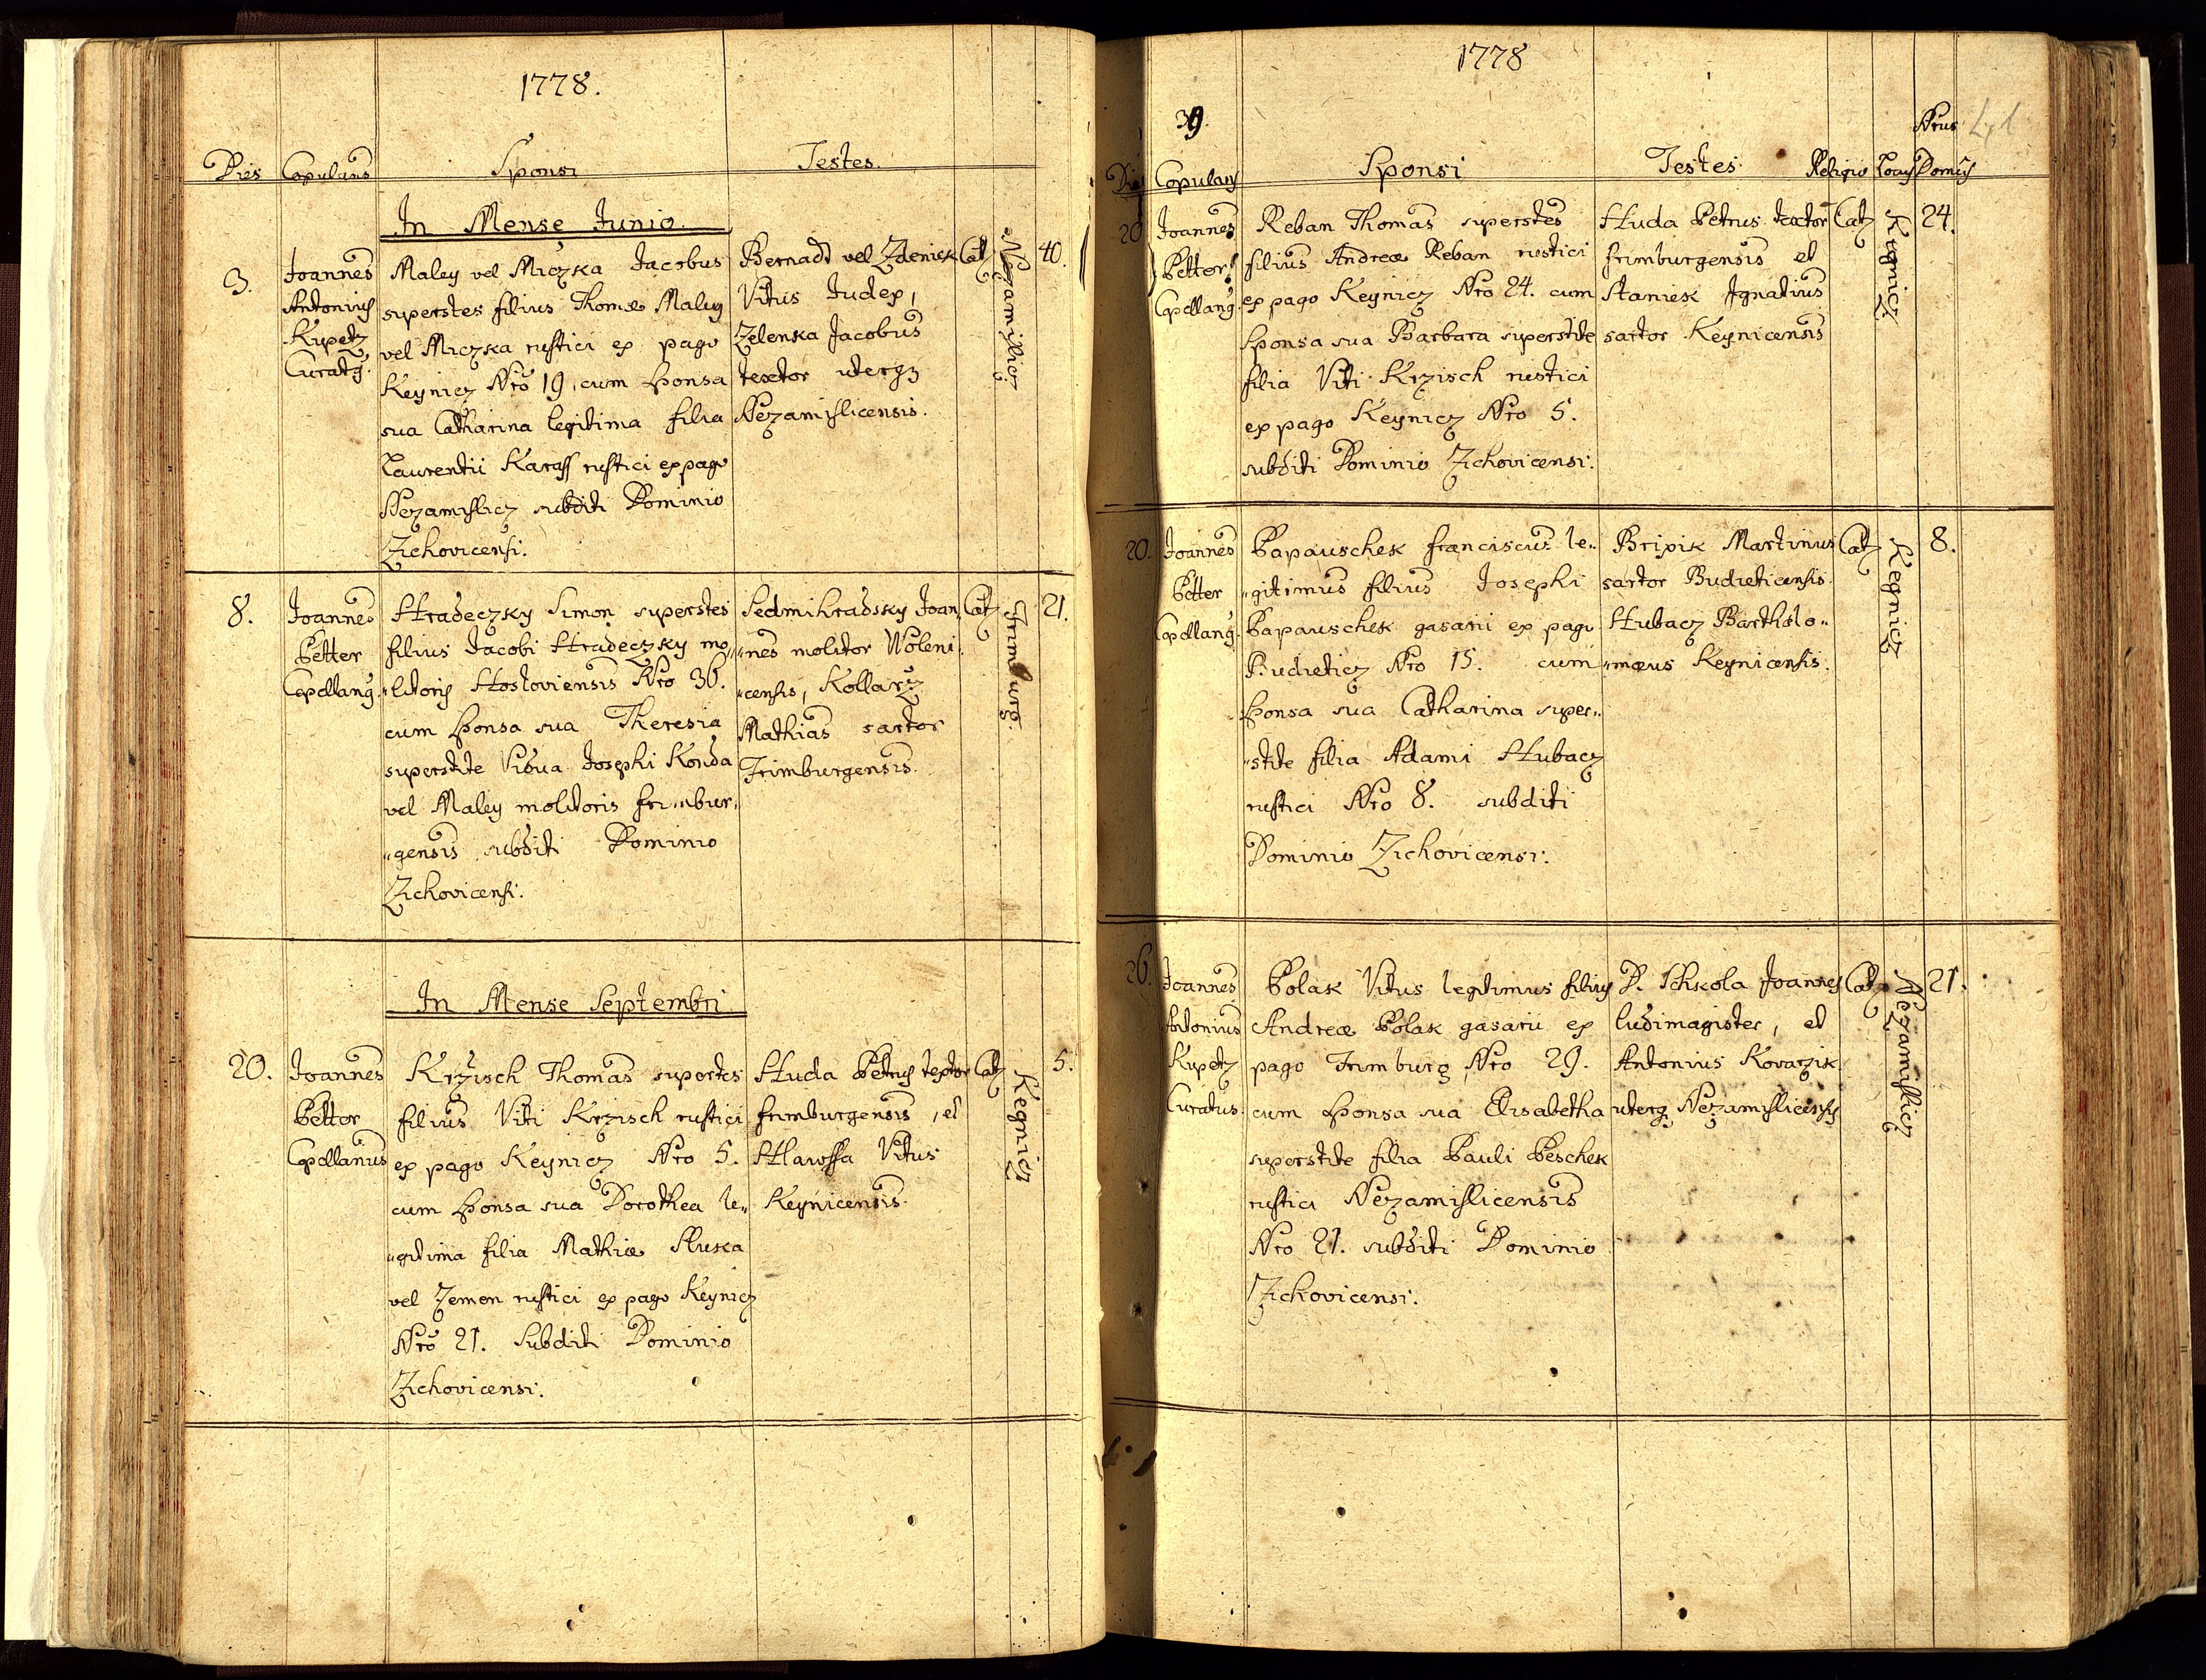 1778.
Dies Copulans Sponsi Testes
In Mense Junio
3. Joannes Antonius Kupetz Curatg.
Maley vel Miczka Jacobus
superstes filius Thomæ Maley
vel Miczka rustici ex pago
Keynicz Nro 19, cum sponsa
sua Catharina legitima filia
Laurentii Karass rustici ex pago
Nezamislicz subditi Dominio
Zichovicensi.
Bernadt vel Zdeniek
Vitus Judex,
Zelenka Jacobus
textor uterq
Nezamislicensis.
Cat
Nezamislicz
40.
8. Joannes
Petter
Capellang.
Hradeczky Simon superstes
filius Jacobi Hradeczky mo„
„litoris Hostoviensis Nro 36.
cum sponsa sua Theresia
superstite Vidua Josephi Konda
vel Maley molitoris frimbur„
„gensis subditi Dominio
Zichovicensi.
Sedmihradsky Joan„
„nes molitor Woleni„
„censis, Kollarz
Mathias sartor
Frimburgensis.
Cat
Frimburg.
21.
In Mense Septembri
20. Joannes
Petter
Capellanus
Krzisch Thomas superstes
filius Viti Krzisch rustici
ex pago Keynicz Nro 5.
cum sponsa sua Dorothea le„
„gitima filia Mathiæ Sluka
vel Zemen rustici ex pago Keynicz
Nro 21. Subditi Dominio
Zichovicensi.
Huda Petrus textor
frimburgensis, et
Hlawssa Vitus
Keynicensis.
Cat
Kegnicz
5.
1778
39.
41
Dies Copulans Sponsi Testes Religio Locus Nrus Domus
20 Joannes
Petter
Capellang.
Reban Thomas superstes
filius Andreæ Reban rustici
ex pago Keynicz Nro 24. cum
Sponsa sua Barbara superstite
filia Viti Krzisch rustici
ex pago Keynicz Nro 5.
subditi Dominio Zichovicensi.
Huda Petrus textor
frimburgensis et
Staniek Ignatius
sartor Keynicensis
Cat
Kegnicz
24.
20. Joannes
Petter
Capellang.
Papauschek franciscus le„
„gitimus filius Josephi
Papauschek gasarii ex pago
Budieticz Nro 15. cum
sponsa sua Catharina super„
„stite filia Adami Hubacz
rustici Nro 8. subditi
Dominio Zichovicensi.
Brixik Martinus
sartor Budieticensis
Hubacz Bartholo„
„mæus Keynicensis.
Cat
Kegnicz
8.
26. Joannes
Antonius
Kupetz
Curatus.
Polak Vitus legitimus filius
Andreæ Polak gasarii ex
pago Frimburg Nro 29.
cum sponsa sua Elisabetha
superstite filia Pauli Peschek
rustici Nezamislicensis
Nro 21. subditi Dominio
Zichovicensi.
D. Schkola Joannes
ludimagister, et
Antonius Kovarzik
uterq Nezamislicensis
Cat
Nezamislicz
21.